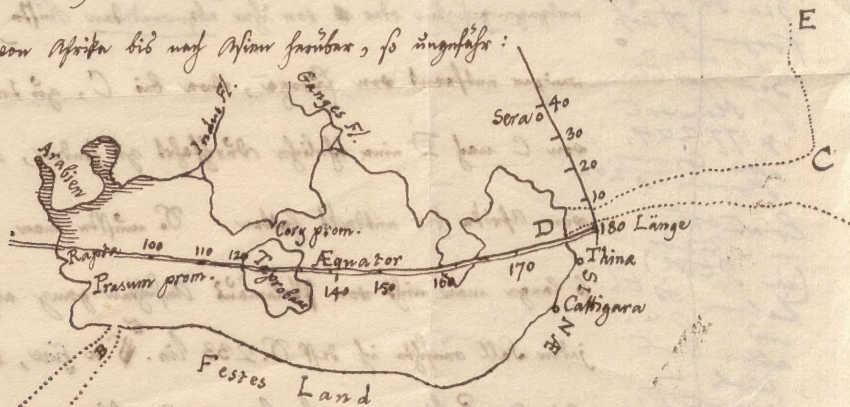 von Afrika bis nach Asien herüber, so ungefähr:
E
Indus Fl.
Ganges Fl.
Sera
40
30
20
10
C
Arabien
Cory prom.
D
180 Länge
Rapta
100
110
120
Taprobane
Æquator
140
150
160
170
Thinæ
Prasum prom.
SINÆ
Cattigara
B
Festes Land